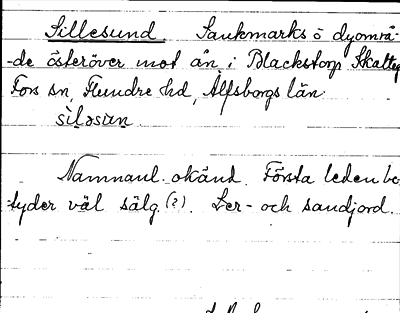 Sillesund Sankmarks ö dyområ-
-de österöver mot ån i Blackstorp Skatteg
Fors sn, Flundre hd, Älfsborgs län.
sìḷəsuṉ
Namnanl. okänd. Första leden be-
tyder väl sälg (?). Ler- och sandjord.